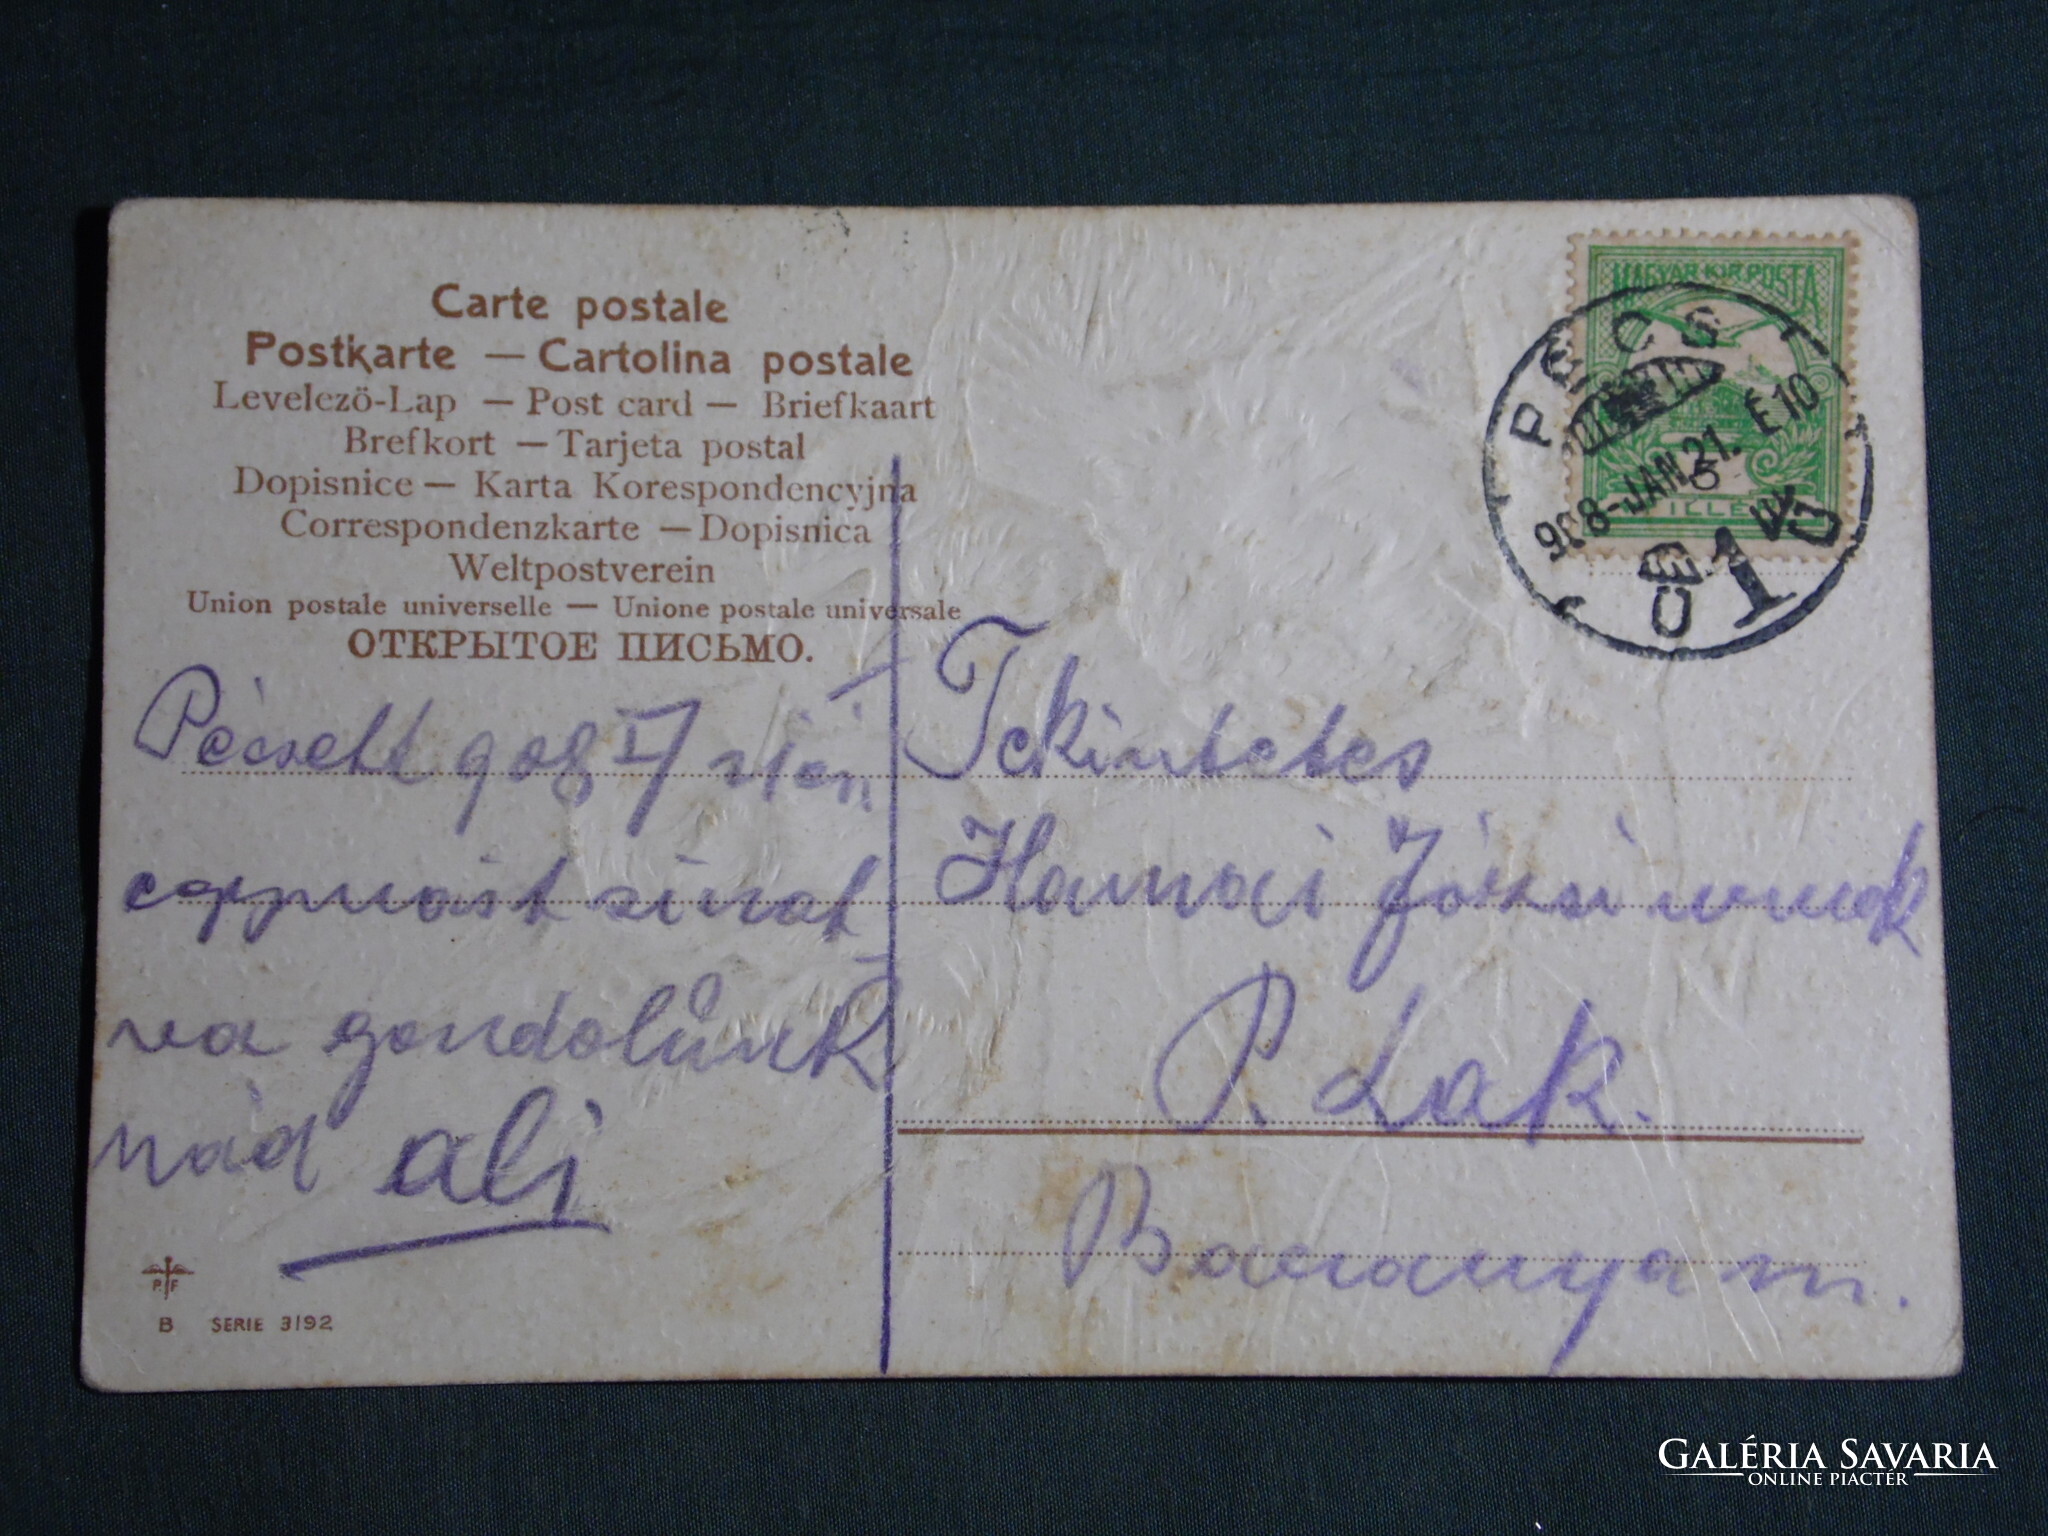 Carte postale
Postkarte — Cartolina postale
Levelező-Lap — Post card — Briefkaart
Brefkort — Tarjeta postal
Dopisnice — Karta Korespondencyjna
Correspondenzkarte — Dopisnica
Weltpostverein
Union postale universelle — Unione postale universale
ОТКРЫТОЕ ПИСЬМО.
Pécsett 908 I/21én
egymást sirat
va gondolunk
rád ali
P F
B SERIE 3192
MAGYAR KIR. POSTA
5
FILLÉR
PÉCS
908-JAN.21. É10
1
Tekintetes
Hamai Józsi
P. Lak.
Baranya m.
GALÉRIA SAVARIA
ONLINE PIACTÉR